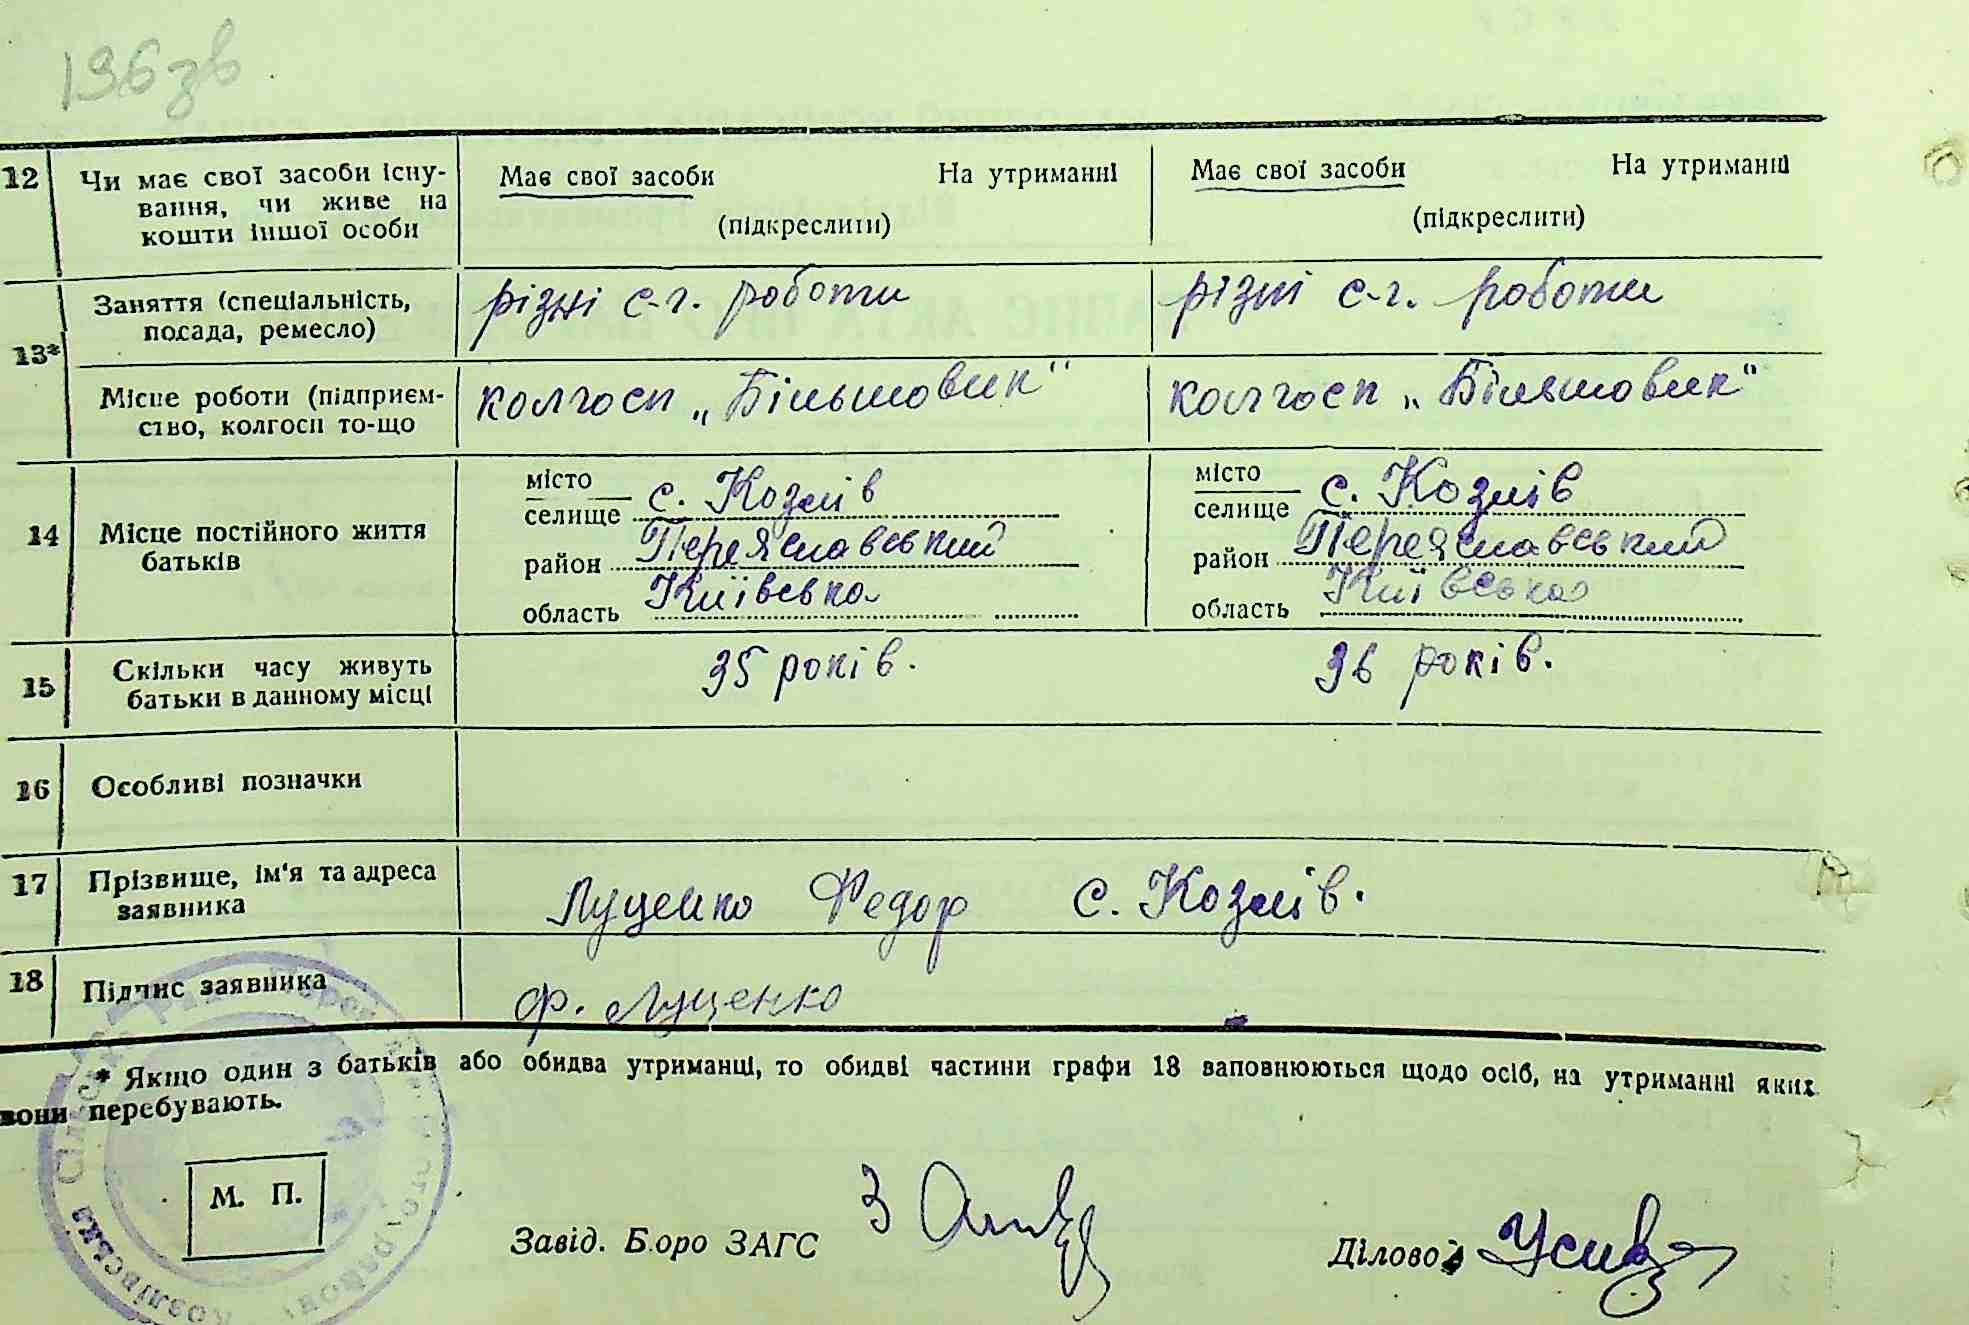 196 зв
12 Чи має свої засоби існу-
вання, чи живе на
кошти іншої особи
Має свої засоби На утриманні
(підкреслити)
Має свої засоби На утриманні
(підкреслити)
13*
Заняття (спеціальність,
посада, ремесло)
різні с-г. роботи
різні с-г. роботи
Місце роботи (підприєм-
ство, колгосп то-що
колгосп „Більшовик"
колгосп „Більшовик"
14 Місце постійного життя
батьків
місто
селище с. Козлів
район Переяславський
область Київська
місто
селище с. Козлів
район Переяславський
область Київська
15 Скільки часу живуть
батьки в данному місці
35 років.
36 років.
16 Особливі позначки
17 Прізвище, ім'я та адреса
заявника
Луценко Федор с. Козлів.
18 Підпис заявника
Ф. Луценко
* Якщо один з батьків або обидва утриманці, то обидві частини графи 18 заповнюються щодо осіб, на утриманні яких
вони перебувають.
М. П.
Завід. Бюро ЗАГС
Діловод
Козлівська Сільська Рада